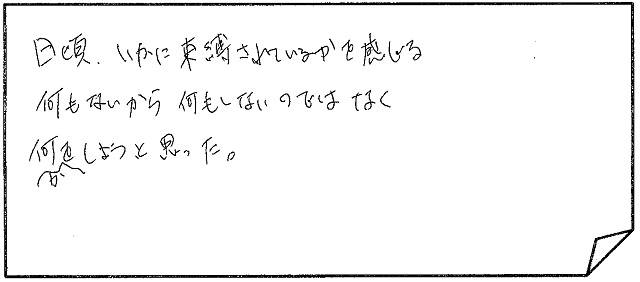 日頃、いかに束縛されているかを感じる
何もないから何もしないのではなく
何かをしようと思った。